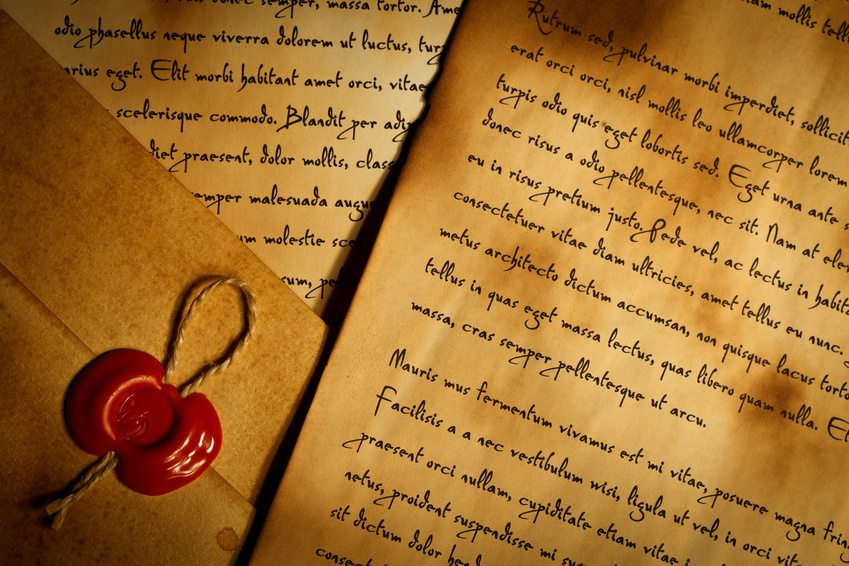 donec semper, massa tortor.
odio phasellus neque viverra dolorem ut luctus,
eget. Elit morbi habitant amet orci, vitae
scelerisque commodo. Blandit per
praesent, dolor mollis,
malesuada
molestie
mollis
Rutrum sed, pulvinar morbi imperdiet,
erat orci orci, nisl mollis leo ullamcorper lorem
turpis odio quis eget lobortis sed. Eget urna ante
donec risus a odio pellentesque, nec sit. Nam at
eu in risus pretium justo. Pede vel, ac lectus in
consectetuer vitae diam ultricies, amet tellus eu nunc.
metus architecto dictum accumsan, non quisque lacus
tellus in quas eget massa lectus, quas libero quam nulla.
massa, cras semper pellentesque ut arcu.
Mauris mus fermentum vivamus est mi vitae, posuere magna
Facilisis a a nec vestibulum wisi, ligula ut vel, in orci
praesent orci nullam, cupiditate etiam vitae
netus, proident suspendisse mi
sit dictum dolor